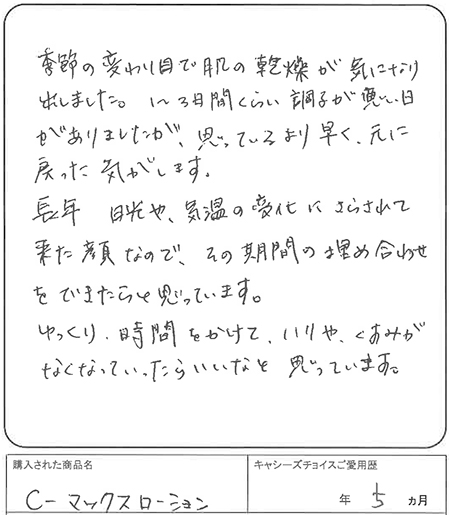 季節の変わり目で肌の乾燥が気になり
出しました。1〜3日間くらい調子が悪い日
がありましたが、思っているより早く、元に
戻った気がします。
長年 日光や、気温の変化にさらされて
来た顔なので、その期間の埋め合わせ
をできたらと思っています。
ゆっくり、時間をかけて、ハリや、くすみが
なくなっていったらいいなと思っています。
購入された商品名
キャシーズチョイスご愛用歴
C-マックスローション
年 5 ヵ月